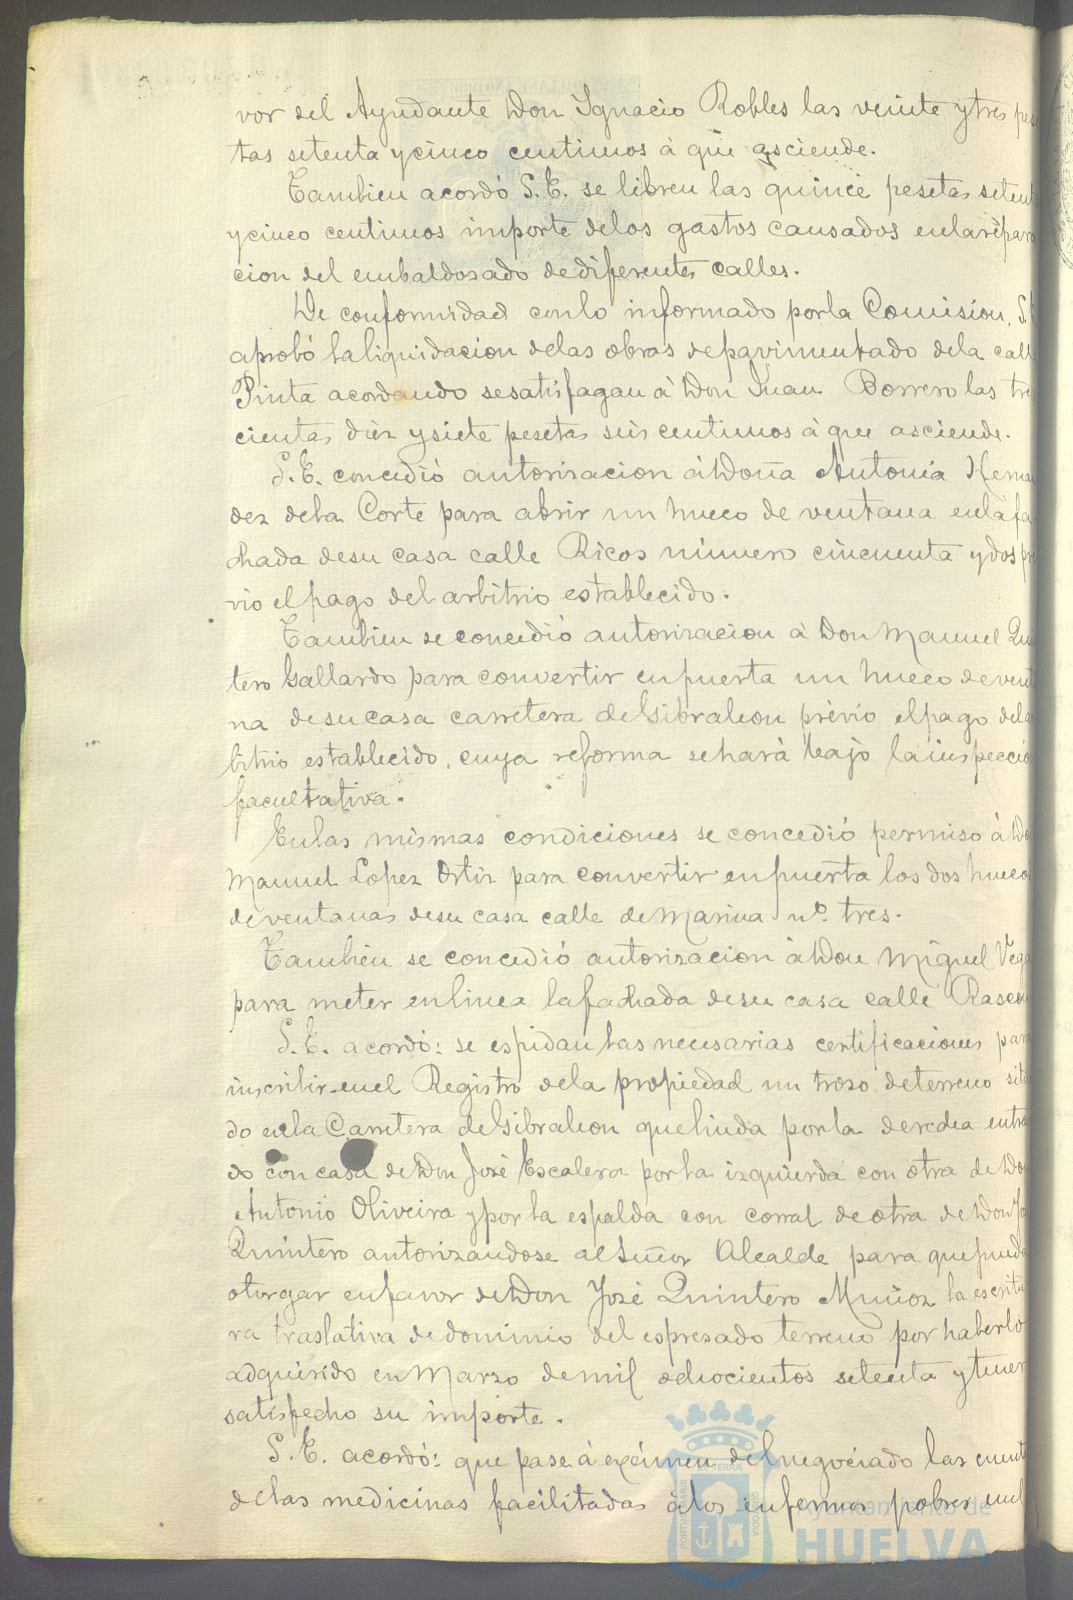 vor del Ayudante Don Ignacio Robles las veinte y tres pes
tas setenta y cinco centimos à que asciende.
Tambien acordó S.E. se libren las quince pesetas setent
y cinco centimos importe de los gastos causados en la repara
cion del embaldosado de diferentes calles.
De conformidad con lo informado por la Comision, S.E
aprobó la liquidacion de las obras de pavimentado de la call
Pinta acordando se satisfagan à Don Juan Borrero las tres
cientas diez y siete pesetas seis centimos à que asciende.
S.E. concedió autorizacion à Doña Antonia Hernan
dez de la Corte para abrir un hueco de ventana en la fa
chada de su casa calle Ricos número cincuenta y dos pre
vio el pago del arbitrio establecido.
Tambien se concedió autorizacion à Don Manuel Quin
tero Gallardo para convertir en puerta un hueco de vent
na de su casa carretera de Gibraleon prévio el pago del ar
bitrio establecido, cuya reforma se hará bajo la inspeccio
facultativa.
En las mismas condiciones se concedió permiso à Do
Manuel Lopez Ortiz para convertir en puerta los dos hueco
de ventanas de su casa calle de Marina nº. tres.
Tambien se concedió autorizacion à Don Miguel Vega
para meter en linea la fachada de su casa calle Rascon
S.E. acordó: se espidan las necesarias certificaciones para
inscribir en el Registro de la propiedad un trozo de terreno situ
do en la Carretera de Gibraleon que linda por la derecha entra
do con casa de Don José Escalera por la izquierda con otra de Do
Antonio Oliveira y por la espalda con corral de otra de Don Jo
Quintero autorizandose al Señor Alcalde para que pueda
otorgar en favor de Don José Quintero Muñoz la escritu
ra traslativa de dominio del espresado terreno por haberlo
adquirido en Marzo de mil ochocientos setenta y tener
satisfecho su importe.
S.E. acordó: que pase à exámen del negociado las cuent
de las medicinas facilitadas à los enfermos pobres en el
Ayuntamiento de
HUELVA